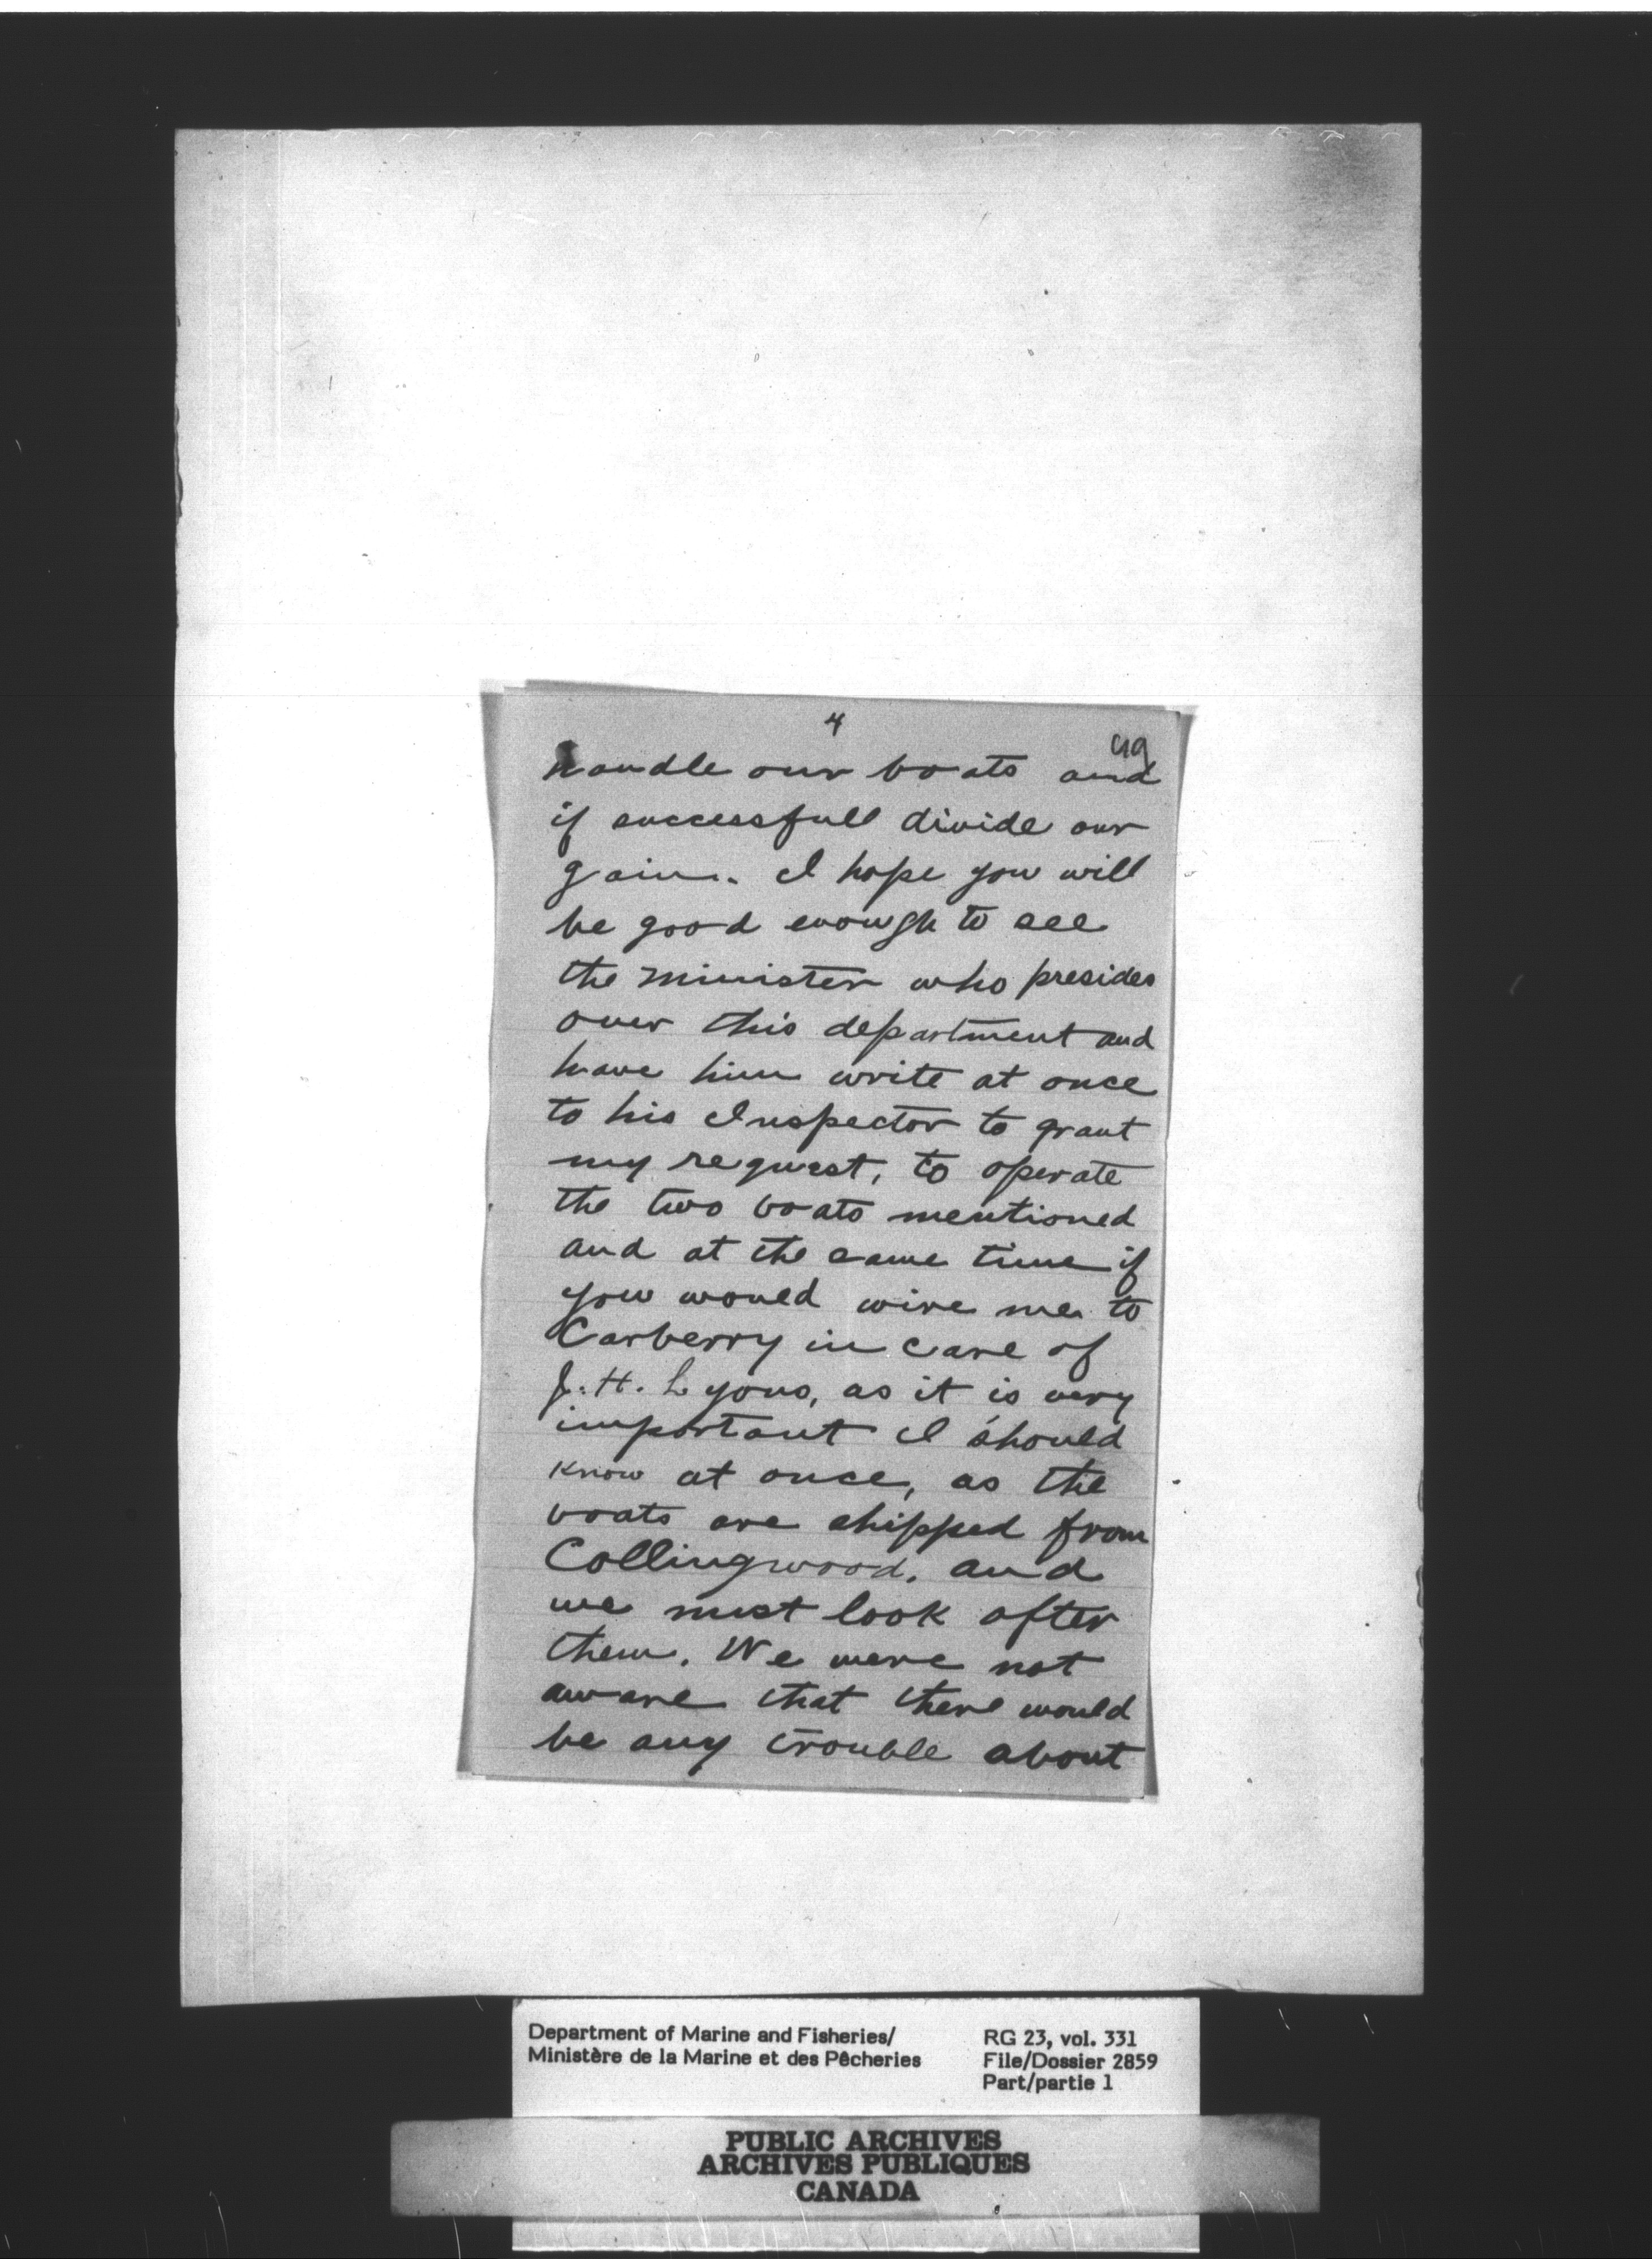 4
49
handle our boats and
if successfull divide our
gain. I hope you will
be good enough to see
the minister who presides
over this department and
have him write at once
to his Inspector to grant
my request, to operate
the two boats mentioned
and at the same time if
you would wire me to
Carberry in care of
J. H. Lyons, as it is very
important I should
know at once, as the
boats are shipped from
Collingwood. and
we must look after
them. We were not
aware that there would
be any trouble about
Department of Marine and Fisheries/
Ministère de la Marine et des Pêcheries
RG 23, vol. 331
File/Dossier 2859
Part/partie 1
PUBLIC ARCHIVES
ARCHIVES PUBLIQUES
CANADA